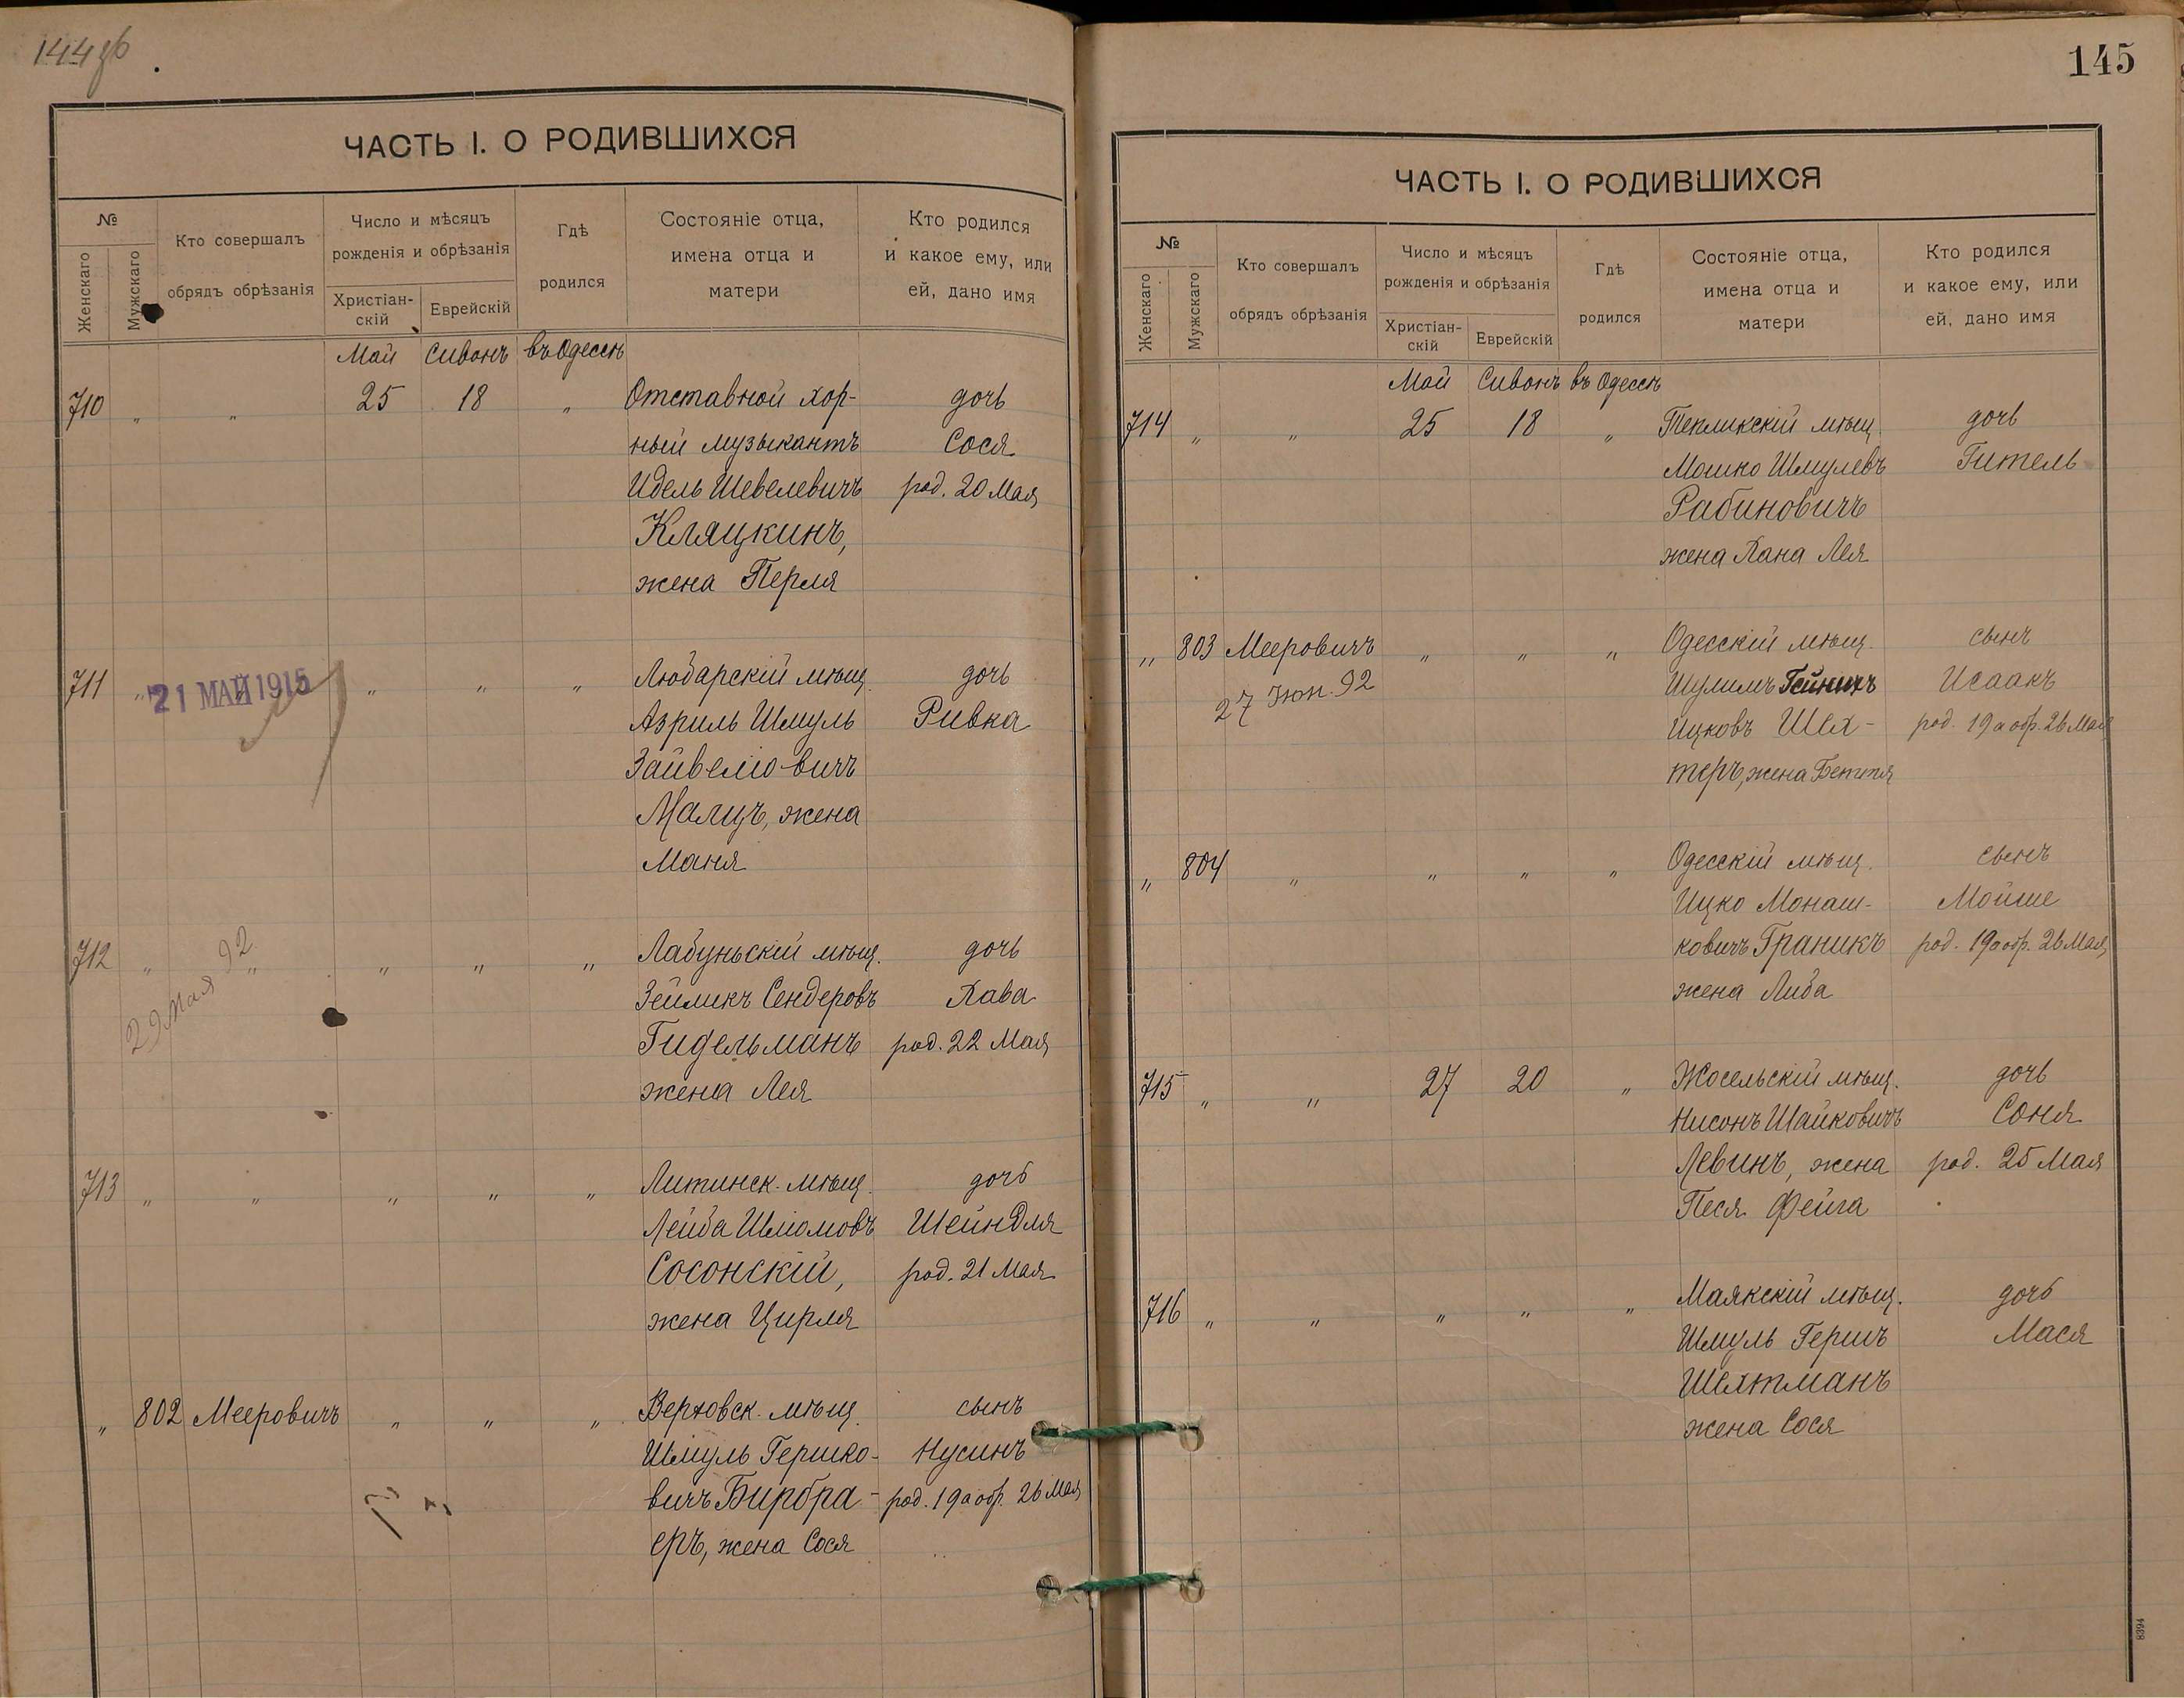 144 об
ЧАСТЬ I. О РОДИВШИХСЯ
№
Женскаго
Мужскаго
Кто совершалъ
обрядъ обрѣзанія
Число и мѣсяцъ
рожденія и обрѣзанія
Христіан-
скій
Еврейскій
Гдѣ
родился
Состояніе отца,
имена отца и
матери
Кто родился
и какое ему, или
ей, дано имя
Май Сивонъ въ Одессѣ
710 „ „ 25 18 „ Отставной хор- дочь
ный музыкантъ Сося
Идель Шевелевичъ род. 20 Мая
Кляцкинъ,
жена Перля
711 „ „ „ „ „ Любарскій мѣщ. дочь
21 МАЙ 1915
Азриль Шмуль Ривка
Зайвеліовичъ
Малцъ, жена
Маня
712 „ „ „ „ „ Лабуньскій мѣщ. дочь
29 Мая 92
Зейликъ Сендеровъ Хава
Гидельманъ род. 22 Мая
жена Лея
713 „ „ „ „ „ Литинск. мѣщ. дочь
Лейба Шліомовъ Шейндля
Сосонскій, род. 21 Мая
жена Цирля
„ 802 Мееровичъ „ „ „ Верховск. мѣщ. сынъ
Шмуль Гершко- Нусинъ
вичъ Бирбра- род. 19 а обр. 26 Мая
еръ, жена Сося
145
ЧАСТЬ I. О РОДИВШИХСЯ
№
Женскаго
Мужскаго
Кто совершалъ
обрядъ обрѣзанія
Число и мѣсяцъ
рожденія и обрѣзанія
Христіан-
скій
Еврейскій
Гдѣ
родился
Состояніе отца,
имена отца и
матери
Кто родился
и какое ему, или
ей, дано имя
Май Сивонъ въ Одессѣ
714 „ „ 25 18 „ Тепликскій мѣщ. дочь
Мошко Шмулевъ Гитель
Рабиновичъ
жена Хана Лея
„ 803 Мееровичъ „ „ „ Одесскій мѣщ. сынъ
27 Іюн. 92
Шулимъ Гейнихъ Исаакъ
Ицковъ Шех- род. 19 а обр. 26 Мая
теръ, жена Беття
„ 804 „ „ „ „ Одесскій мѣщ. сынъ
Ицко Монаш- Мойше
ковичъ Граникъ род. 19 а обр. 26 Мая
жена Либа
715 „ „ 27 20 „ Жосельскій мѣщ. дочь
Нисонъ Шайковичъ Соня
Левинъ, жена род. 25 Мая
Песя Фейга
716 „ „ „ „ „ Маякскій мѣщ. дочь
Шмуль Гершъ Мася
Шехтманъ
жена Сося
8394